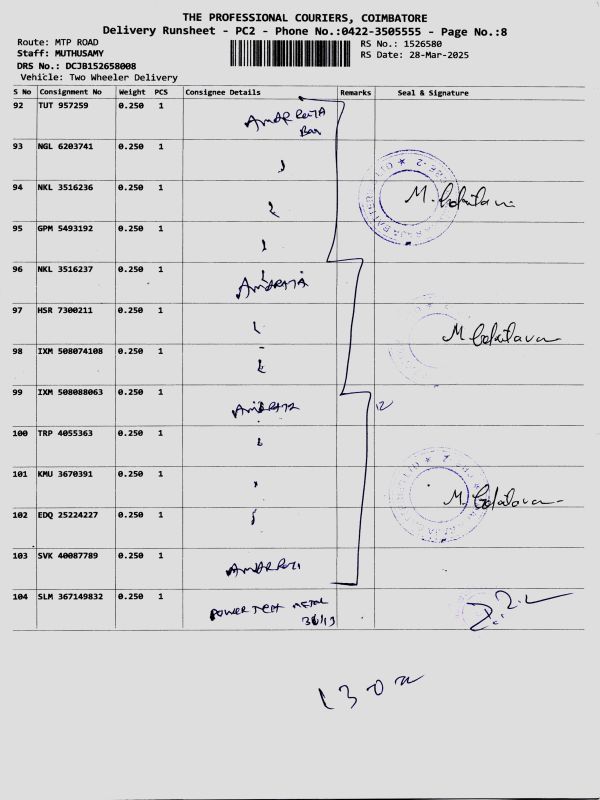 THE PROFESSIONAL COURIERS, COIMBATORE
Delivery Runsheet - PC2 - Phone No.:0422-3505555 - Page No.:8
Route: MTP ROAD
RS No.: 1526580
Staff: MUTHUSAMY
RS Date: 28-Mar-2025
DRS No.: DCJB152658008
Vehicle: Two Wheeler Delivery
S No Consignment No Weight PCS Consignee Details Remarks Seal & Signature
92 TUT 957259 0.250 1
93 NGL 6203741 0.250 1
94 NKL 3516236 0.250 1
95 GPM 5493192 0.250 1
96 NKL 3516237 0.250 1
97 HSR 7300211 0.250 1
98 IXM 508074108 0.250 1
99 IXM 508088063 0.250 1
12
100 TRP 4055363 0.250 1
101 KMU 3670391 0.250 1
102 EDQ 25224227 0.250 1
103 SVK 40087789 0.250 1
104 SLM 367149832 0.250 1 POWER TECH METAL